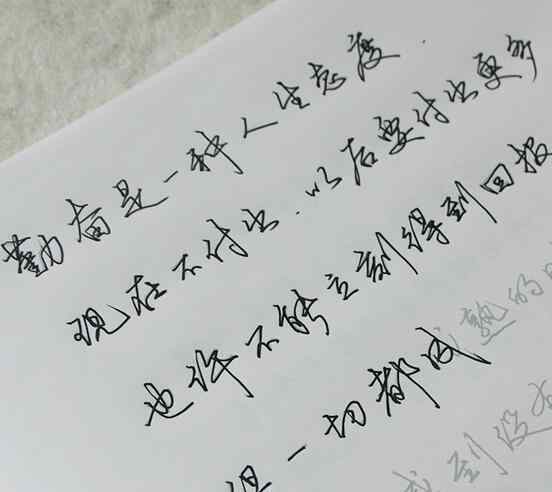 勤奋是一种人生态度.
现在不付出.以后要付出更多
也许不能立刻得到回报
但一切都成熟的
到没有